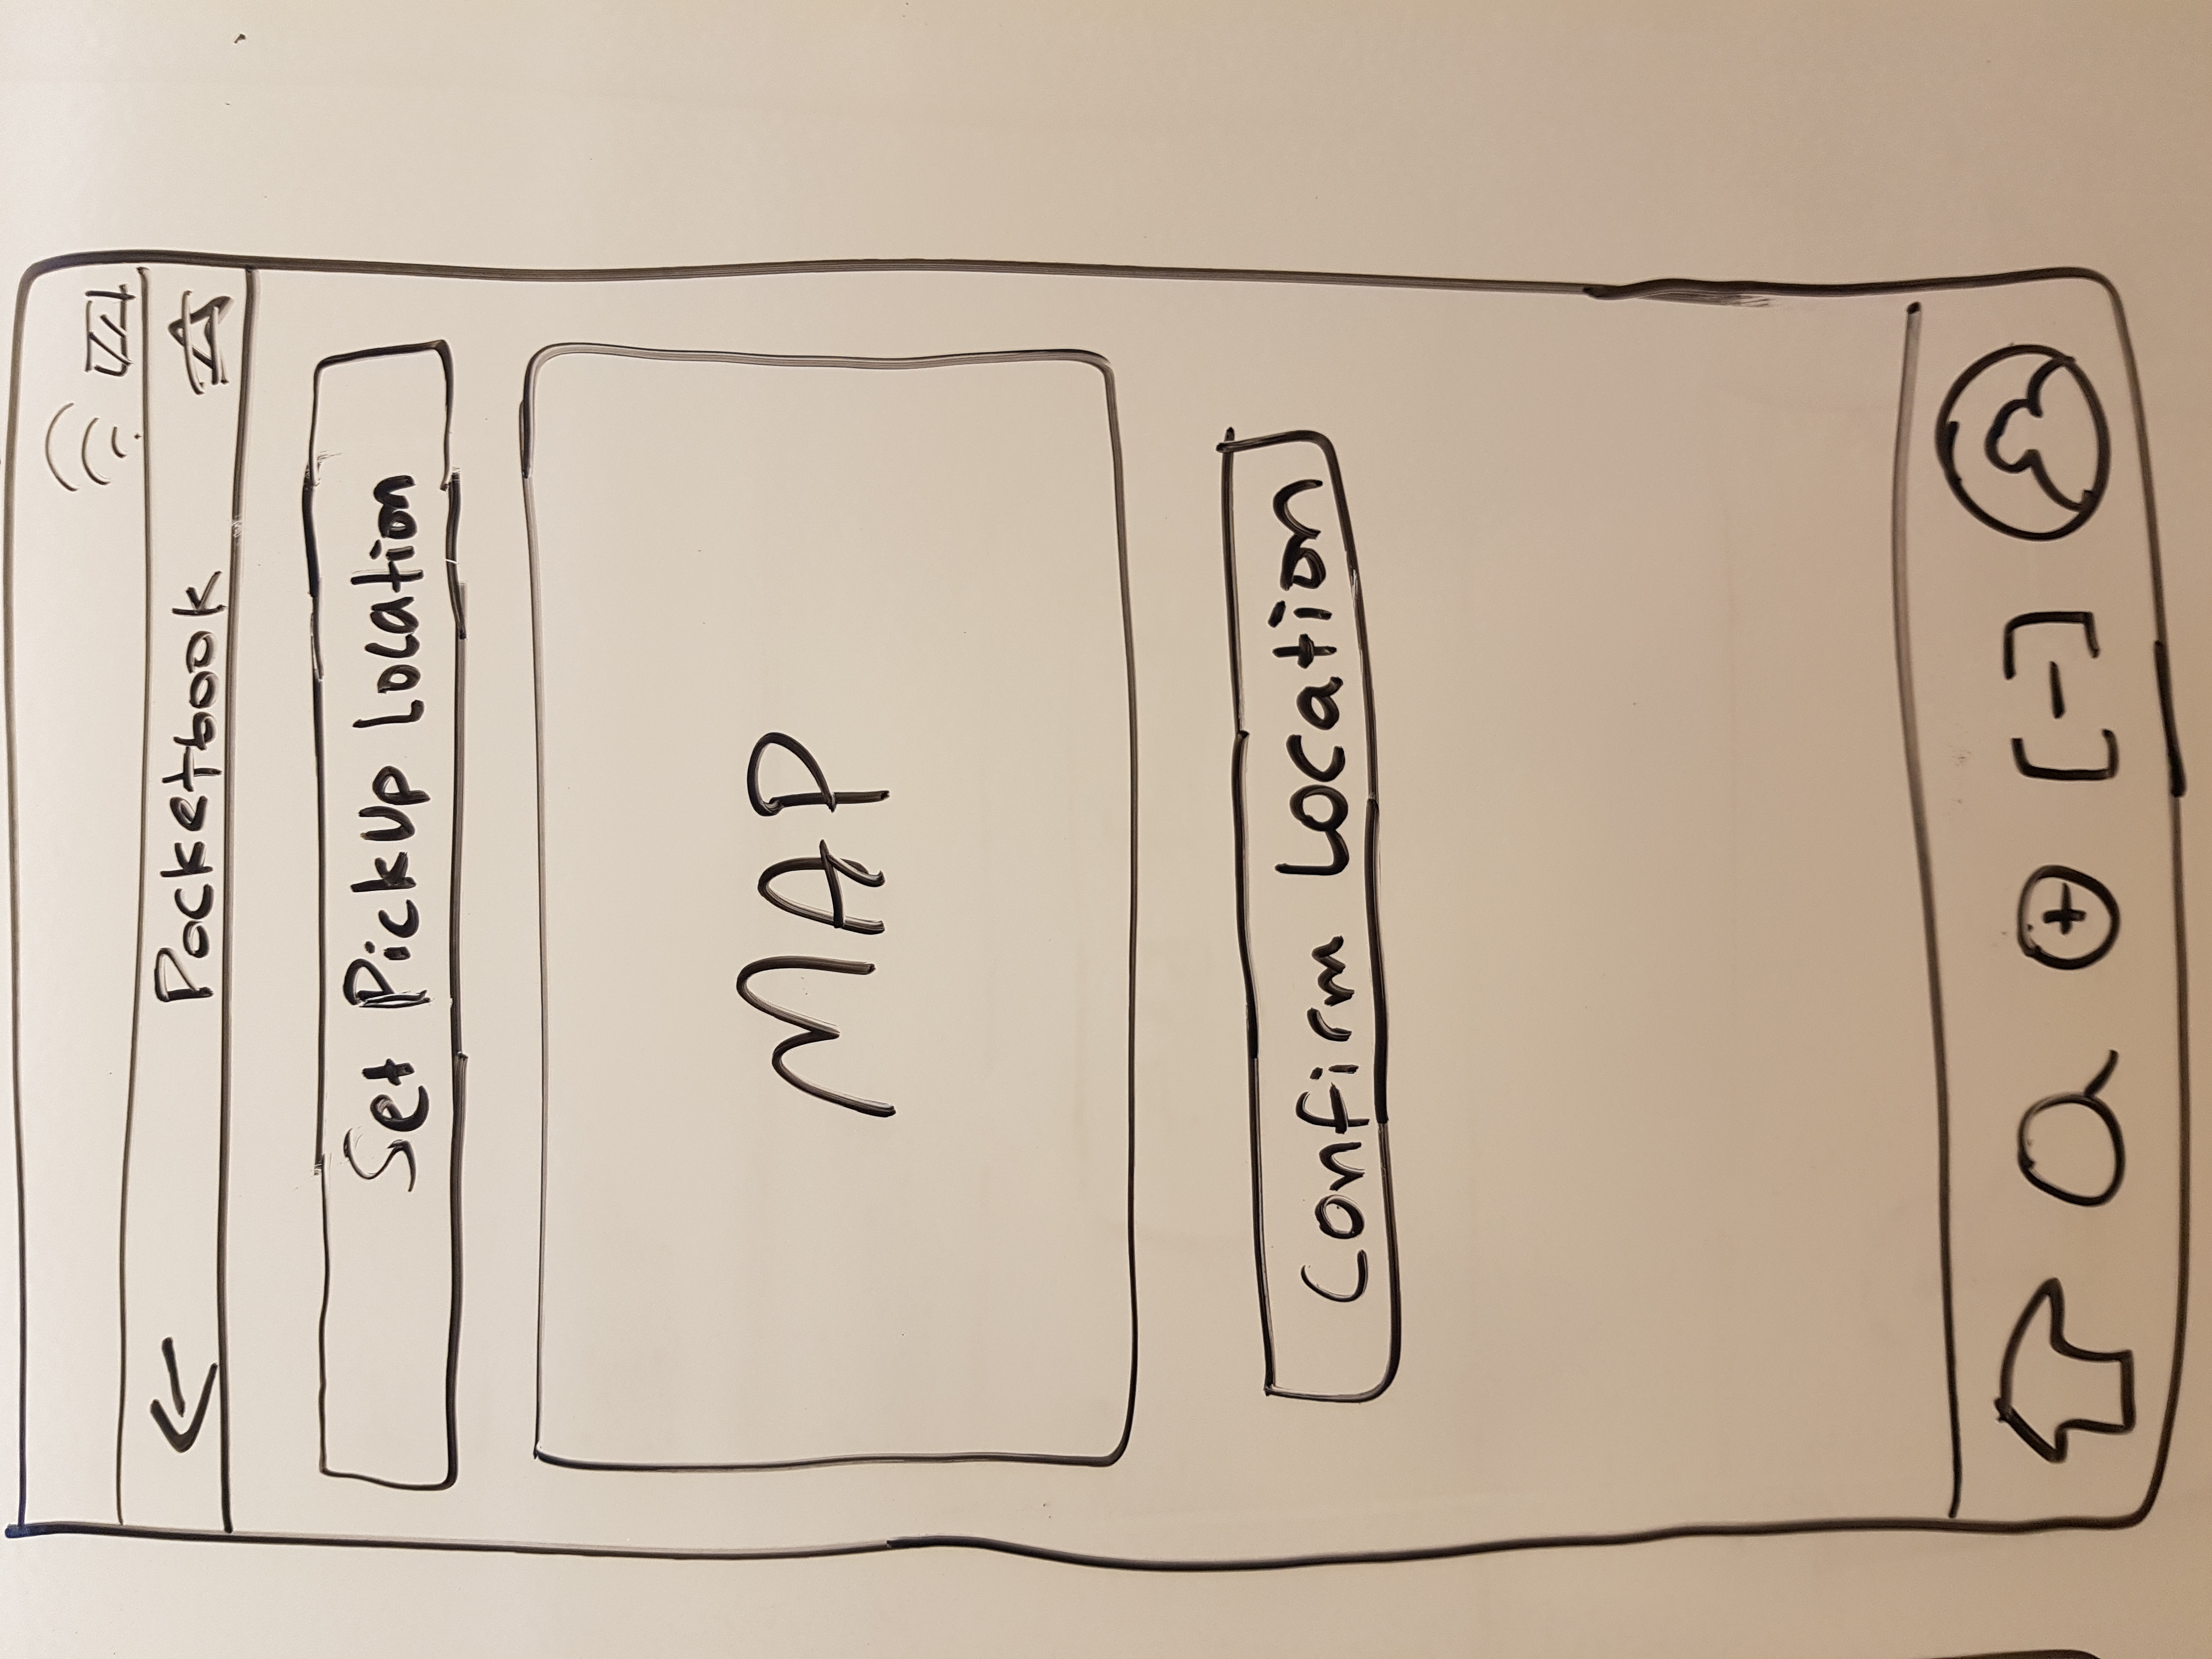 Pocketbook
Set PickUp Location
MAP
Confirm Location